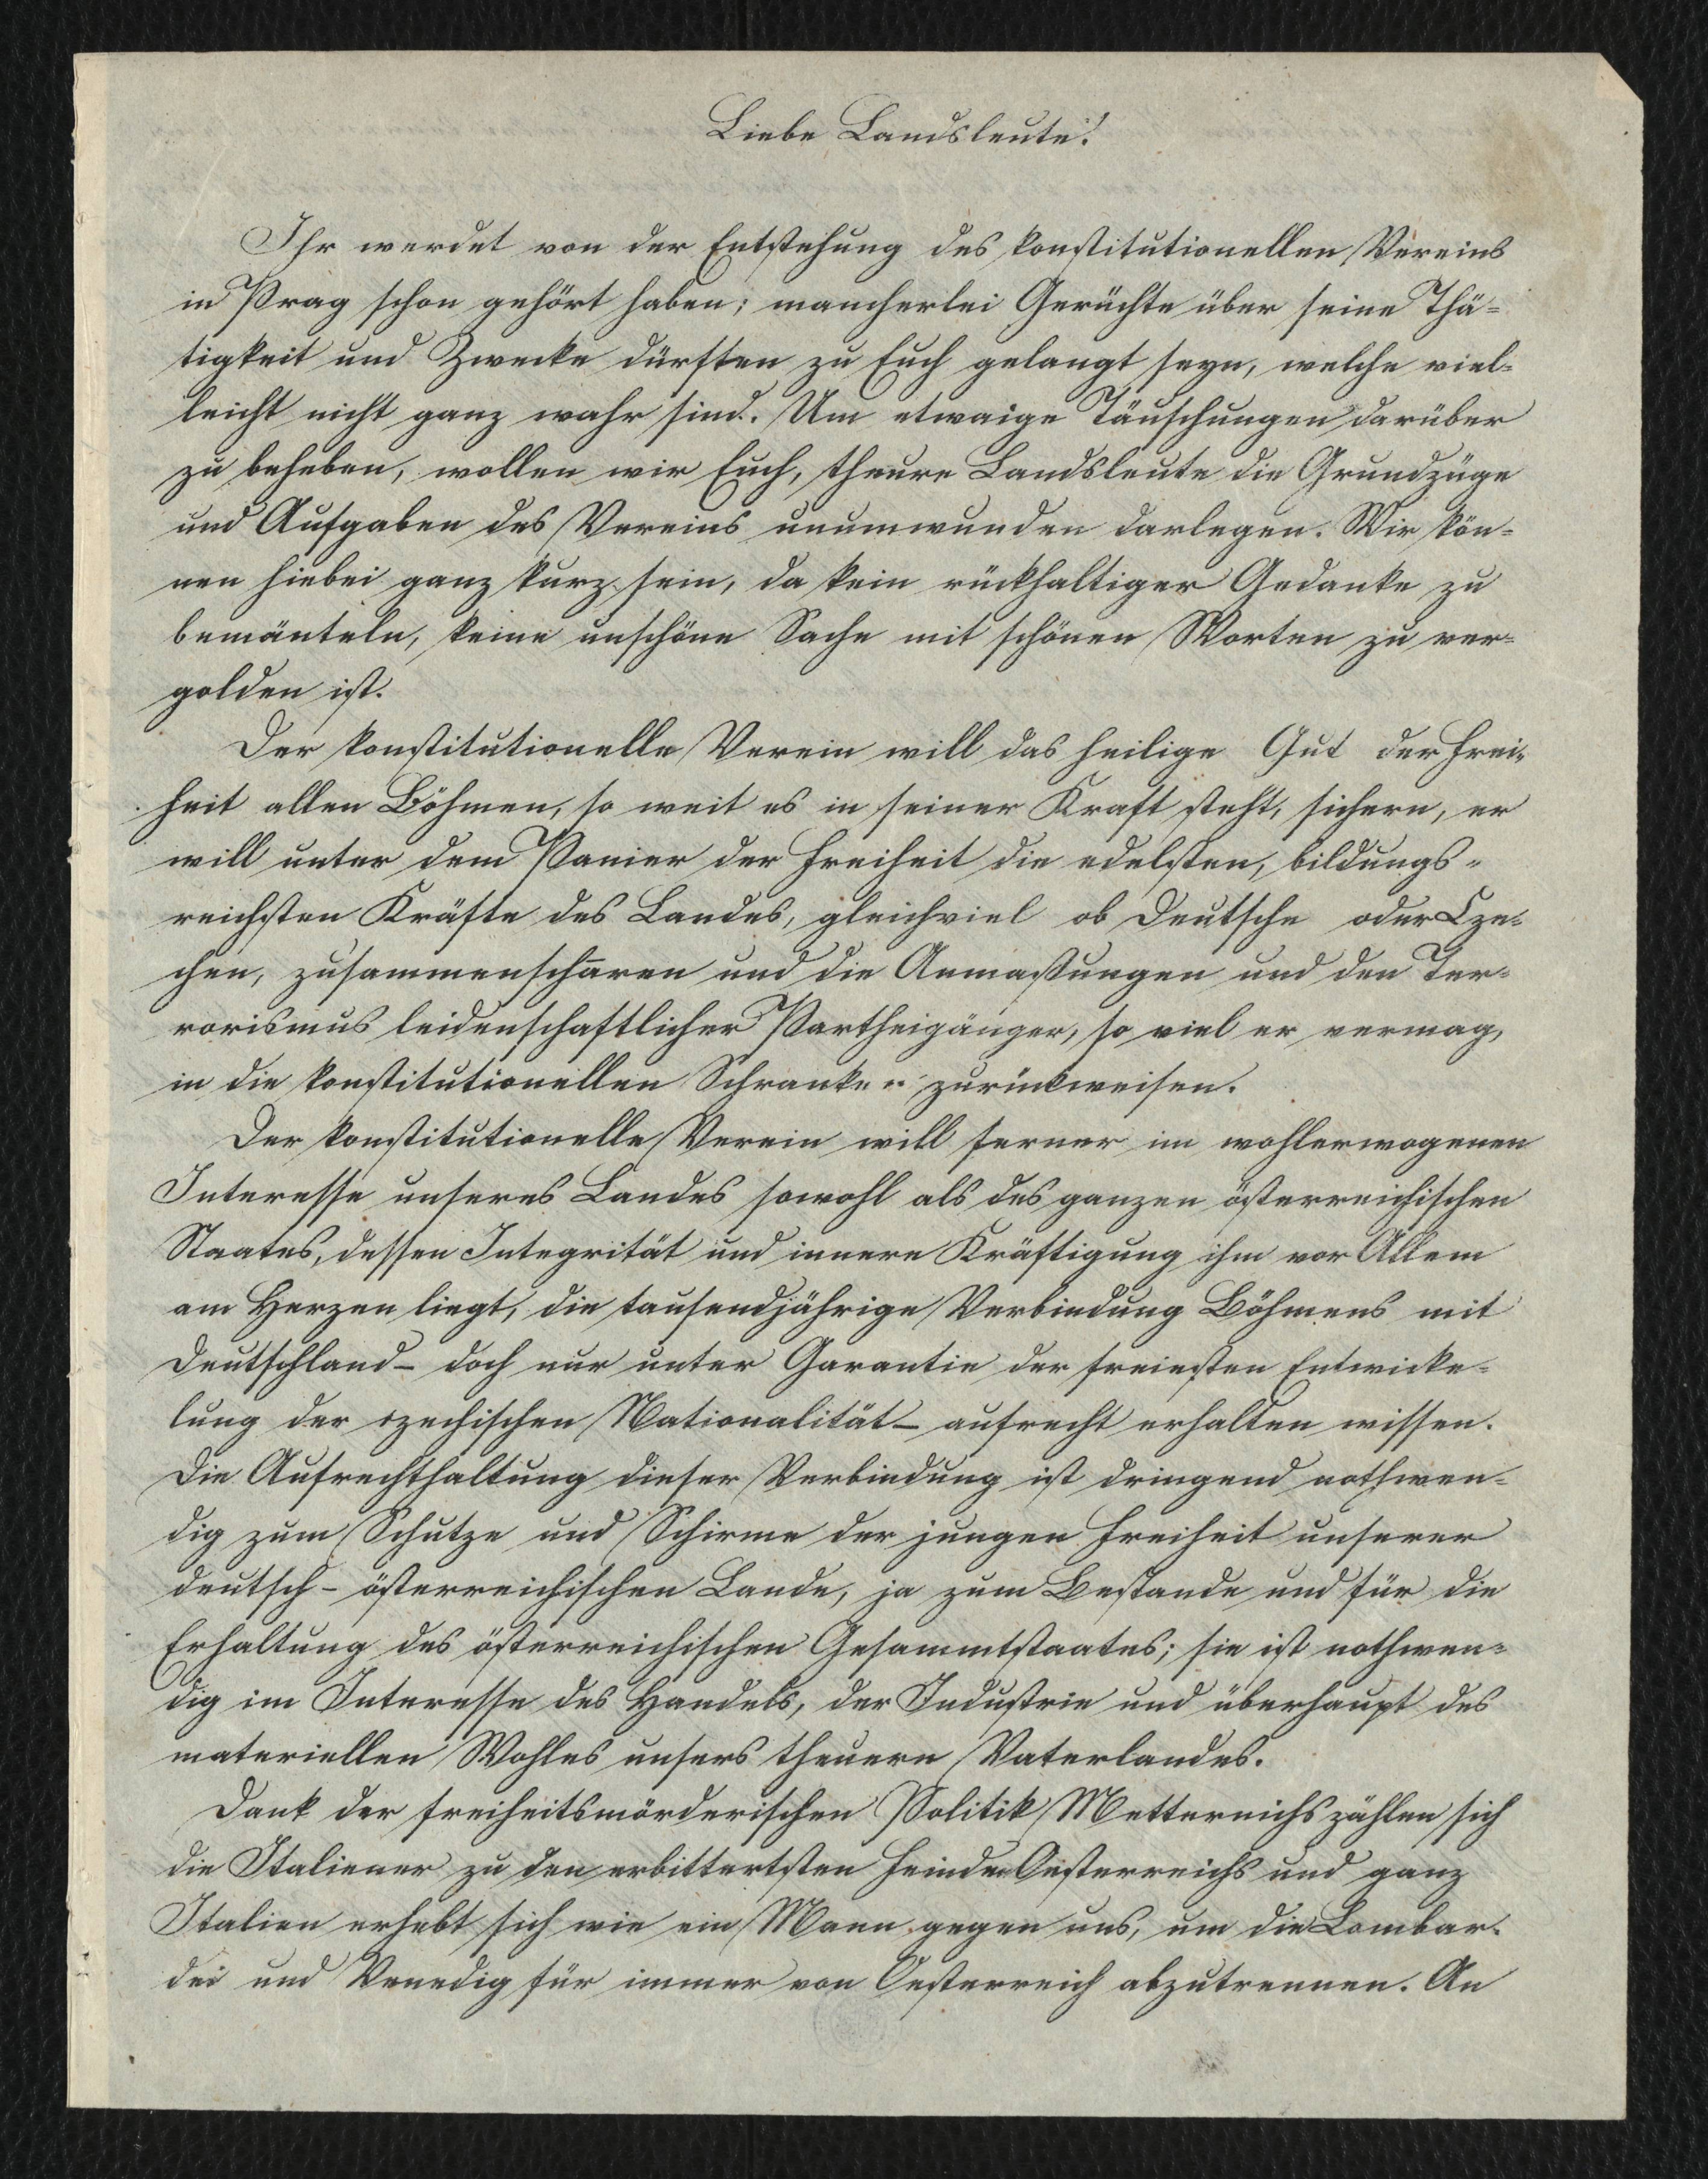 Liebe Landsleute!
Ihr werdet von der Entstehung des konstitutionellen Vereins
in Prag schon gehört haben; mancherlei Gerüchte über seine Thä-
tigkeit und Zwecke dürften zu Euch gelangt seyn, welche viel-
leicht nicht ganz wahr sind. Um etwaige Täuschungen darüber
zu beheben, wollen wir Euch, theure Landsleute die Grundzüge
und Aufgaben des Vereins unumwunden darlegen. Wir kön-
nen hiebei ganz kurz sein, da kein rückhaltiger Gedanke zu
bemänteln, keine unschöne Sache mit schönen Worten zu ver-
golden ist.
Der konstitutionelle Verein will das heilige Gut der Frei-
heit allen Böhmen, so weit es in seiner Kraft steht, sichern, er
will unter dem Panier der Freiheit die edelsten, bildungs-
reichsten Kräfte des Landes, gleichviel ob Deutsche oder Cze-
chen, zusammenscharen und die Anmaßungen und den Ter-
rorismus leidenschaftlicher Partheigänger, so viel er vermag,
in die konstitutionellen Schranken zurückweisen.
Der konstitutionelle Verein will ferner im wohlerwogenen
Interesse unseres Landes sowohl als des ganzen österreichischen
Staates, dessen Integrität und innere Kräftigung ihm vor Allem
am Herzen liegt, die tausendjährige Verbindung Böhmens mit
Deutschland – doch nur unter Garantie der freiesten Entwicke-
lung der czechischen Nationalität – aufrecht erhalten wissen.
Die Aufrechthaltung dieser Verbindung ist dringend nothwen-
dig zum Schutze und Schirme der jungen Freiheit unserer
deutsch-österreichischen Lande, ja zum Bestande und für die
Erhaltung des österreichischen Gesammtstaates; sie ist nothwen-
dig im Interesse des Handels, der Industrie und überhaupt des
materiellen Wohles unsers theuern Vaterlandes.
Dank der freiheitsmörderischen Politik Metternichs zählen sich
die Italiener zu den erbittertsten Feinden Oesterreichs und ganz
Italien erhebt sich wie ein Mann gegen uns, um die Lombar-
dei und Venedig für immer von Oesterreich abzutrennen. An